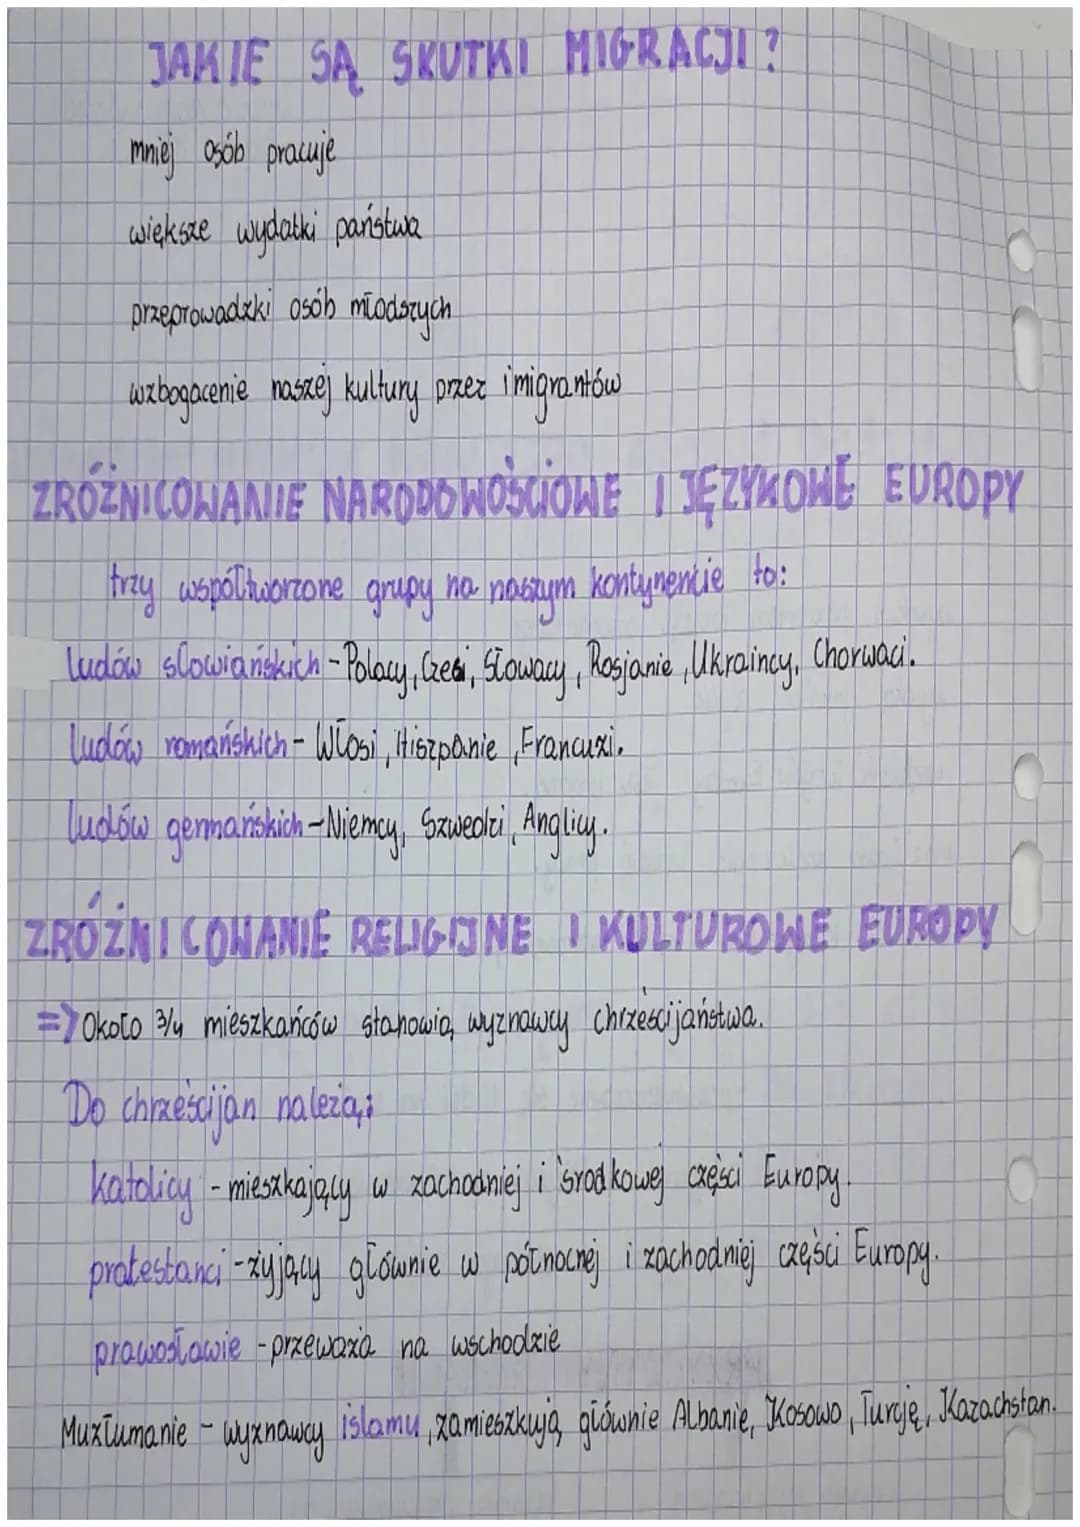 JAKIE SĄ SKUTKI MIGRACJI?
mniej osób pracuje
większe wydatki państwa
przeprowadzki osób młodszych
wzbogacenie naszej kultury przez imigrantów
ZRÓŻNICOWANIE NARODOWOŚCIOWE I JĘZYKOWE EUROPY
trzy współtworzone grupy na naszym kontynencie to:
ludów słowiańskich - Polacy, Czesi, Słowacy, Rosjanie, Ukraincy, Chorwaci.
ludów romańskich - Włosi, Hiszpanie, Francuzi.
ludów germańskich - Niemcy, Szwedzi, Anglicy.
ZRÓŻNICOWANIE RELIGIJNE I KULTUROWE EUROPY
=> Około 3/4 mieszkańców stanowią wyznawcy chrześcijaństwa.
Do chrześcijan należą:
katolicy - mieszkający w zachodniej i środkowej części Europy.
protestanci - żyjący głównie w północnej i zachodniej części Europy.
prawosławie - przeważa na wschodzie
Muzłumanie - wyznawcy islamu, zamieszkują głównie Albanię, Kosowo, Turcję, Kazachstan.